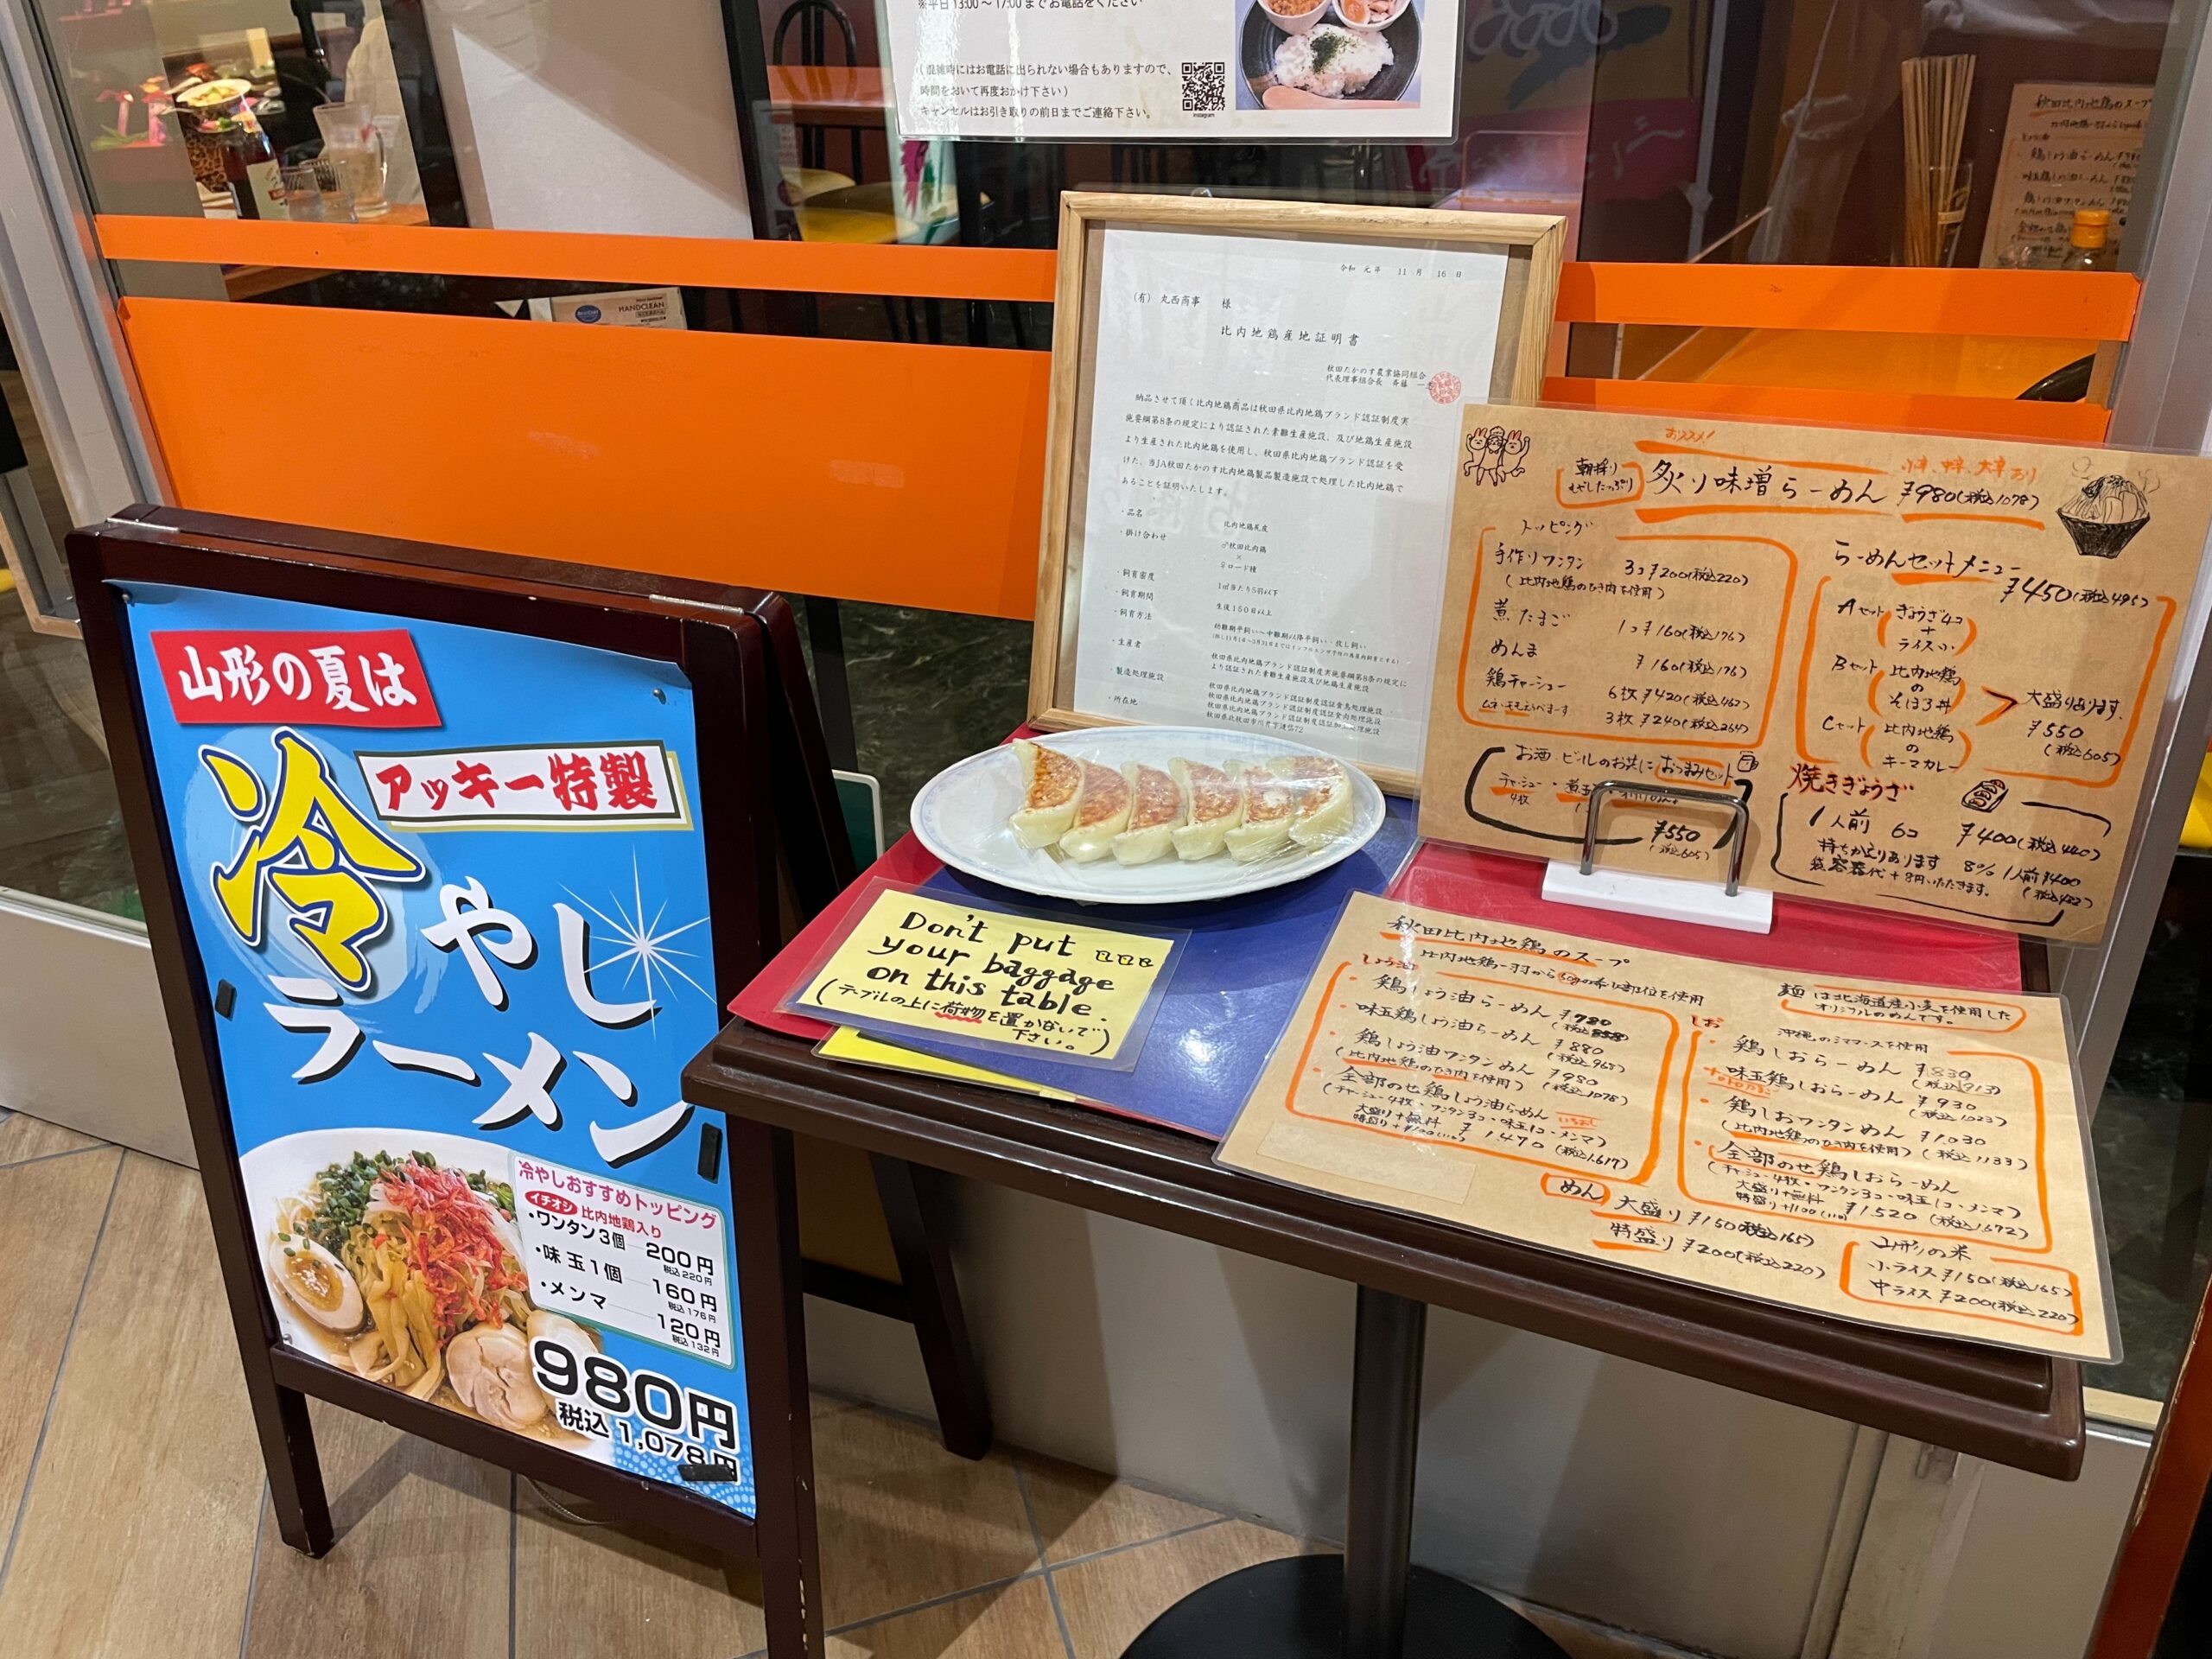 ※平日13:00～17:00までお電話をください
（混雑時にはお電話に出られない場合もありますので、
時間をおいて再度おかけ下さい）
キャンセルはお引き取りの前日までご連絡下さい。
HANDCLEAN
令和 元年 11月 16日
(有) 丸西商事 様
比内地鶏産地証明書
秋田たかのす農業協同組合
代表理事組合長 斉藤 一
納品させて頂く比内地鶏商品は秋田県比内地鶏ブランド認証制度実
施要綱第8条の規定により認証された素雛生産施設、及び地鶏生産施設
より生産された比内地鶏を使用し、秋田県比内地鶏ブランド認証を受
けた、当JA秋田たかのす比内地鶏製品製造施設で処理した比内地鶏で
あることを証明いたします。
・品名 比内地鶏死産
・掛け合わせ ♂秋田比内鶏
×
♀ロード種
・飼育密度 1㎡当たり5羽以下
・飼育期間 生後150日以上
・飼育方法 幼雛期平飼い～中雛期以降平飼い・放し飼い
・生産者 秋田県比内地鶏ブランド認証制度実施要綱第8条の規定に
より認証された素雛生産施設及び地鶏生産施設
・製造処理施設 秋田県比内地鶏ブランド認証制度認証食鳥処理施設
秋田県比内地鶏ブランド認証制度認証食肉処理施設
秋田県比内地鶏ブランド認証制度認証加工処理施設
・所在地
山形の夏は
アッキー特製
冷やし
ラーメン
冷やしおすすめトッピング
イチオシ 比内地鶏入り
・ワンタン3個 200円
税込220円
・味玉1個 160円
税込176円
・メンマ 120円
税込132円
980円
税込1,078円
Don't put
your baggage
on this table.
(テーブルの上に荷物を置かないで
下さい。)
おススメ!
小辛、中辛、大辛あり
朝採り
もやしたっぷり
炙り味噌らーめん ¥980(税込1078)
トッピング
手作りワンタン 3コ ¥200(税込220)
(比内地鶏のひき肉を使用)
煮たまご 1コ ¥160(税込176)
めんま ¥160(税込176)
鶏チャーシュー 6枚 ¥420(税込462)
3枚 ¥240(税込264)
お酒 ビールのお共に おつまみセット
チャーシュー・煮玉
4枚
¥550
(税込605)
らーめんセットメニュー
¥450(税込495)
Aセット ぎょうざ4コ
+
ライス小
Bセット 比内地鶏
の
そぼろ丼
Cセット 比内地鶏
の
キーマカレー
大盛りあります。
¥550
(税込605)
焼きぎょうざ
1人前 6コ ¥400(税込440)
持ち帰りあります 8% 1人前¥400
袋容器代+8円いただきます。 (税込432)
秋田比内地鶏のスープ
比内地鶏一羽から50gの希少部位を使用
しょう油
・鶏しょう油らーめん ¥780
(税込858)
・味玉鶏しょう油らーめん ¥880
(税込968)
・鶏しょう油ワンタンめん ¥980
(比内地鶏のひき肉を使用) (税込1078)
・全部のせ鶏しょう油らーめん
(チャーシュー4枚・ワンタン3コ・味玉1コ・メンマ)
大盛り+無料
特盛り+¥100(110) ¥1,470 (税込1,617)
麺は北海道産小麦を使用した
オリジナルのめんです。
しお
沖縄のシママースを使用
・鶏しおらーめん ¥830
(税込913)
・味玉鶏しおらーめん ¥930
(税込1,023)
・鶏しおワンタンめん ¥1,030
(比内地鶏のひき肉を使用) (税込1,133)
・全部のせ鶏しおらーめん
(チャーシュー4枚・ワンタン3コ・味玉1コ・メンマ)
大盛り+無料
特盛り+¥100(110) ¥1,520 (税込1,672)
めん 大盛り ¥150(税込165)
特盛り ¥200(税込220)
山形の米
小ライス ¥150(税込165)
中ライス ¥200(税込220)